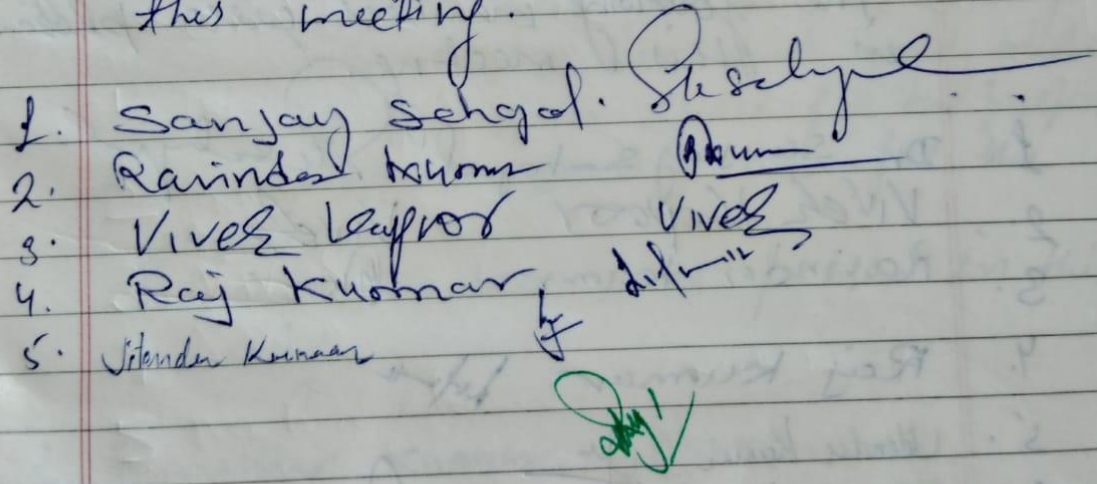 this meeting.
1. Sanjay Sehgal.
2. Ravinder Kumar
3. Vivek Kapoor Vivek
4. Raj Kumar
5. Jitender Kumar